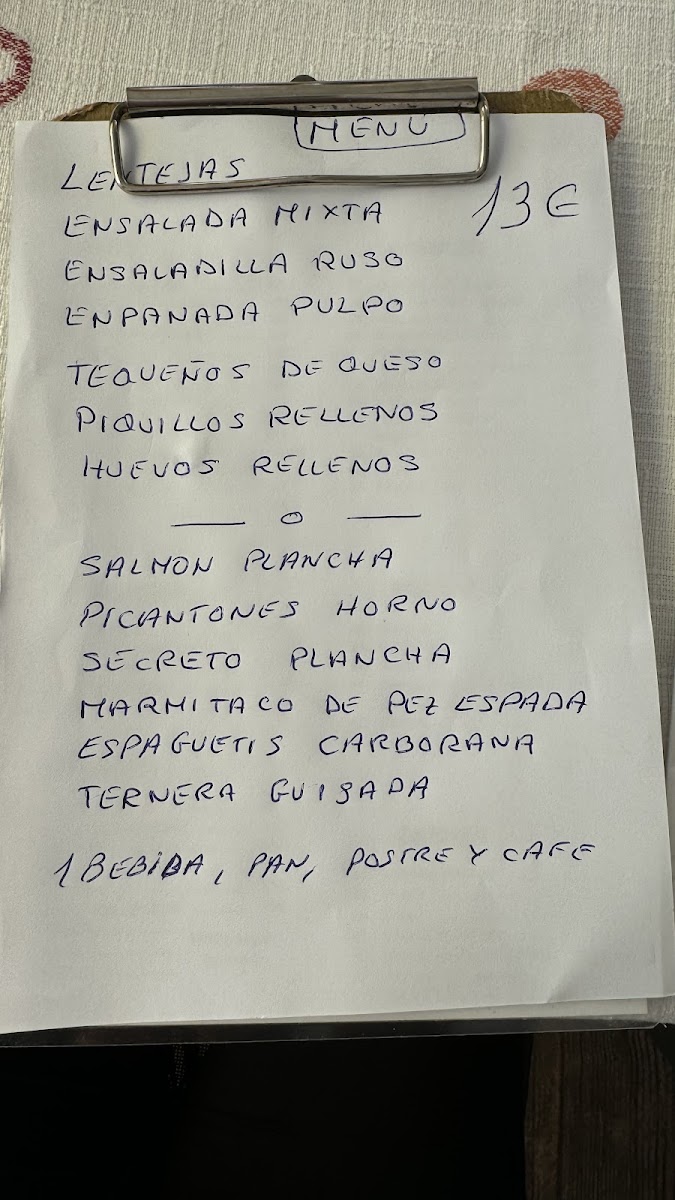 MENÚ
LENTEJAS
13€
ENSALADA MIXTA
ENSALADILLA RUSO
ENPANADA PULPO
TEQUEÑOS DE QUESO
PIQUILLOS RELLENOS
HUEVOS RELLENOS
— o —
SALMON PLANCHA
PICANTONES HORNO
SECRETO PLANCHA
MARMITACO DE PEZ ESPADA
ESPAGUETIS CARBORANA
TERNERA GUISADA
1 BEBIDA, PAN, POSTRE Y CAFE